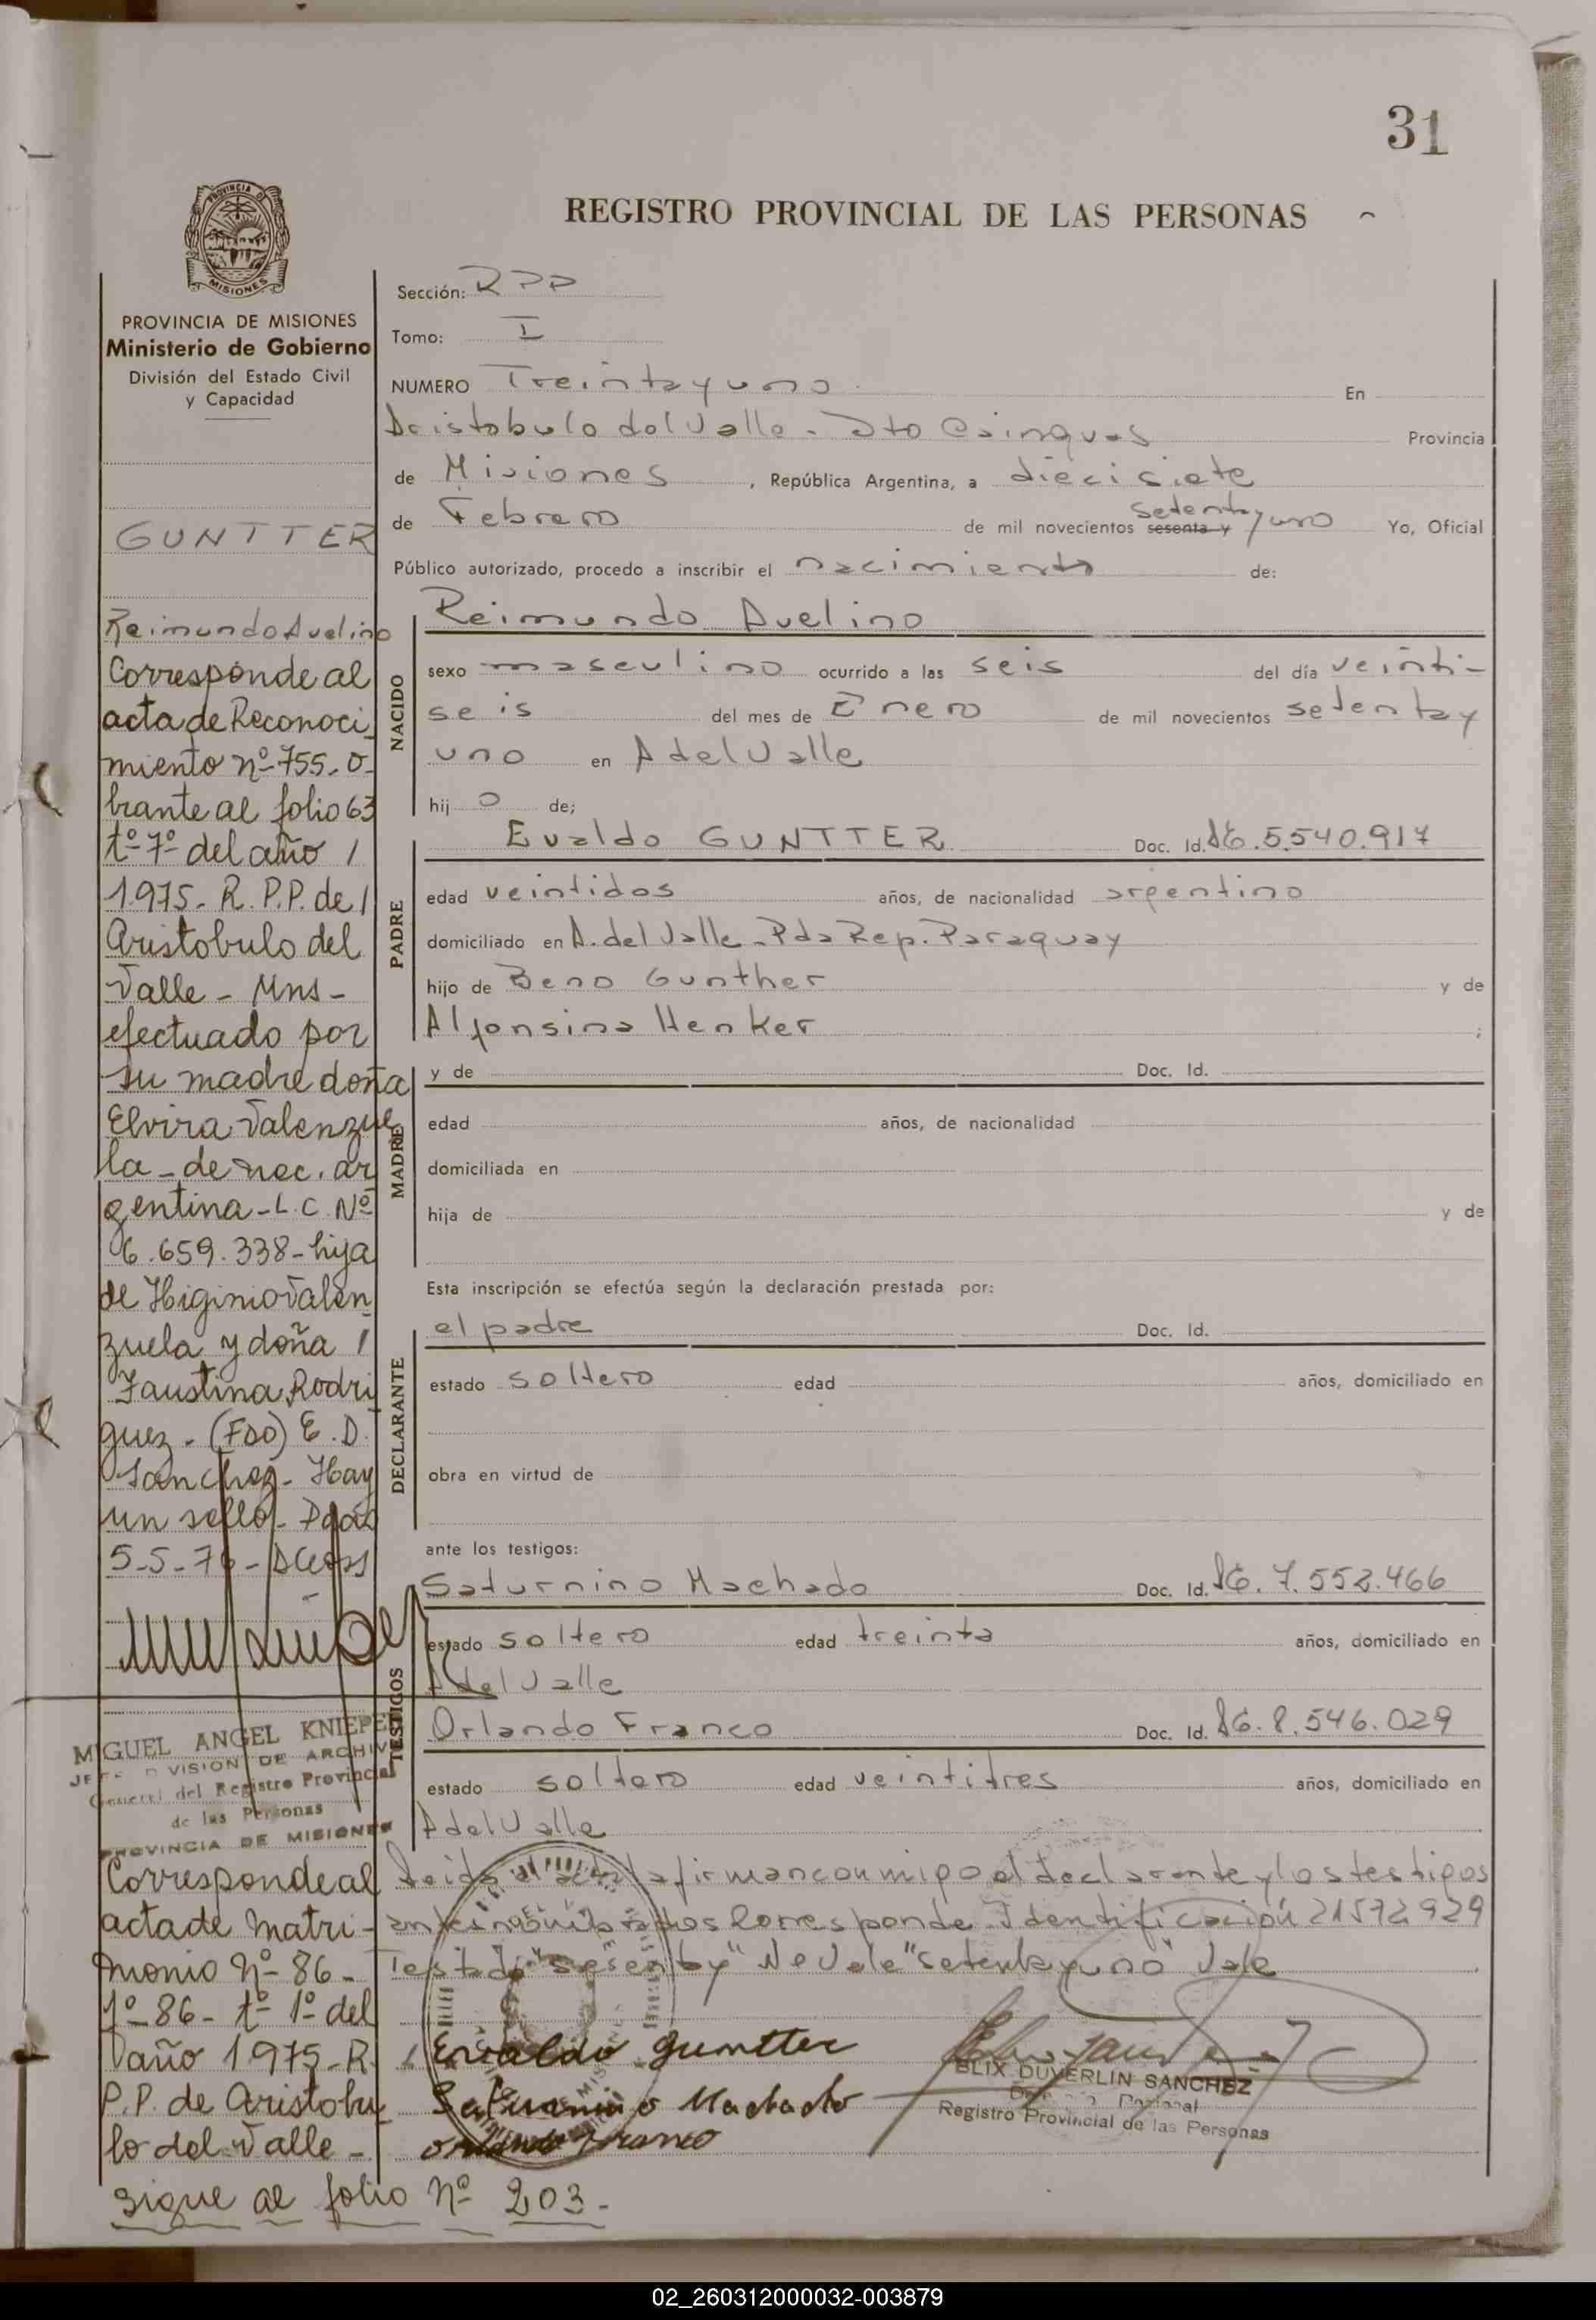 31
REGISTRO PROVINCIAL DE LAS PERSONAS
PROVINCIA DE MISIONES
Ministerio de Gobierno
División del Estado Civil
y Capacidad
GUNTTER
Reimundo Avelino
Corresponde al
acta de Reconoci-
miento nº 755. o-
brante al folio 63
tº 7º del año /
1975- R. P.P. de /
Aristobulo del
Valle - Mns -
efectuado por
su madre doña
Elvira Valenzue
la - de nac. ar
gentina - L.C. Nº
6.659.338 - hija
de Higinio Valen
zuela y doña /
Faustina Rodri
guez - (Fdo) E. D.
Sanchez - Hay
un sello - Pdas
5-5-76 -
MIGUEL ANGEL KNIEPE
JEFE DIVISION DE ARCHIV
General del Registro Provincial
de las Personas
PROVINCIA DE MISIONES
Corresponde al
acta de matri-
monio nº 86 -
fº 86 - tº 1º del
año 1975 - R.
P.P. de Aristobu
lo del Valle -
sigue al folio nº 203 -
Sección: RPP
Tomo: I
NUMERO Treinta y uno En
Aristobulo del Valle - Dto Cainguas Provincia
de Misiones, República Argentina, a diecisiete
de Febrero de mil novecientos sesenta y setenta y uno Yo, Oficial
Público autorizado, procedo a inscribir el nacimiento de:
Reimundo Avelino
NACIDO
sexo masculino ocurrido a las seis del día veinti-
seis del mes de Enero de mil novecientos setenta y
uno en A del Valle
hij o de;
PADRE
Evaldo GUNTTER Doc. Id. 5.540.917
edad veintidos años, de nacionalidad argentino
domiciliado en A. del Valle - Pda Rep. Paraguay
hijo de Beno Gunther y de
Alfonsina Henker ;
MADRE
y de Doc. Id.
edad años, de nacionalidad
domiciliada en
hija de y de
Esta inscripción se efectúa según la declaración prestada por:
DECLARANTE
el padre Doc. Id.
estado soltero edad años, domiciliado en
obra en virtud de
ante los testigos:
TESTIGOS
Saturnino Machado Doc. Id. 7.552.466
estado soltero edad treinta años, domiciliado en
A del Valle
Orlando Franco Doc. Id. 8.546.029
estado soltero edad veintitres años, domiciliado en
A del Valle
Leida el acta la firman conmigo el declarante y los testigos
Corresponde Identificación 21572929
Testado "sesenta y" No Vale "setenta y uno" Vale
Evaldo Guntter
Saturnino Machado
Orlando Franco
ELIX DUVERLIN SANCHEZ
Registro Provincial de las Personas
02_260312000032-003879